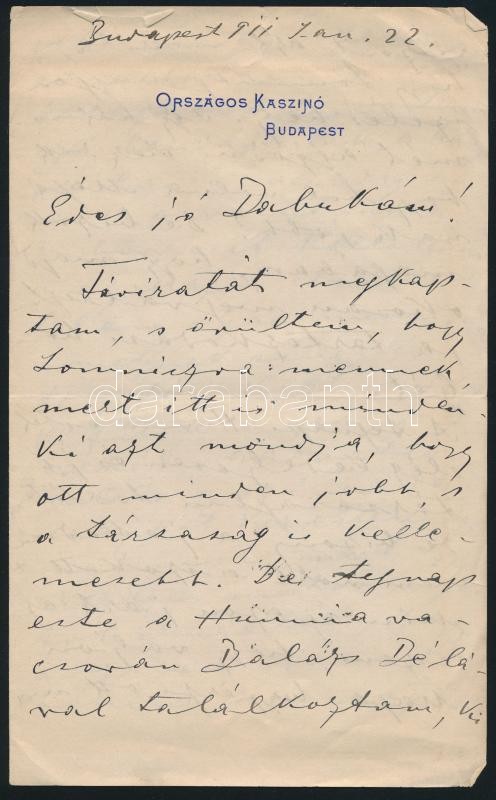 Budapest 911 Jan. 22.
ORSZÁGOS KASZINÓ
BUDAPEST
Édes jó Dabukám!
Táviratát megkap-
tam, s örültem, hogy
Lomniczra mennek
mert itt is minden-
ki azt mondja, hogy
ott minden jobb, s
a társaság is kelle-
mesebb. De tegnap
este a Hunnia va-
csorán Balázs Bélá-
val találkoztam, ki
darabanth